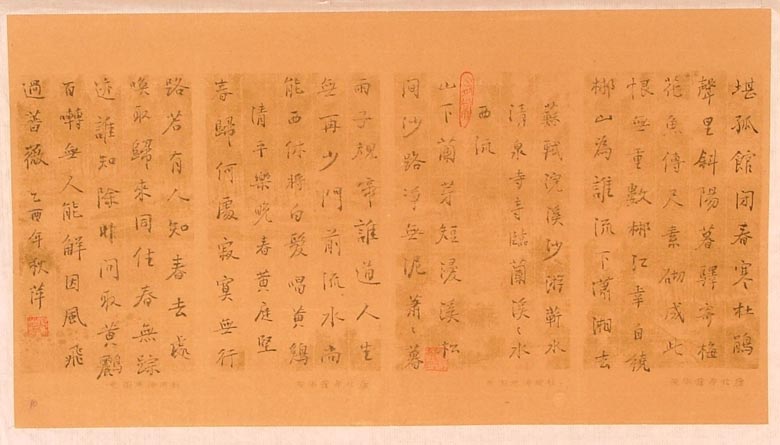 堪孤館閉春寒杜鵑
聲里斜陽暮驛寄梅
花魚傳尺素砌成此
恨無重數郴江幸自繞
郴山為誰流下瀟湘去
蘇軾浣溪沙游蘄水
清泉寺寺臨蘭溪〻水
西流
山下蘭芽短浸溪松
間沙路淨無泥蕭〻暮
雨子規啼誰道人生
無再少門前流水尚
能西休將白髮唱黃鷄
清平樂晚春黃庭堅
春歸何處寂寞無行
路若有人知春去處
喚取歸來同住春無踪
迹誰知除非問取黃鸝
百囀無人能解因風飛
過薔薇 乙酉年秋萍